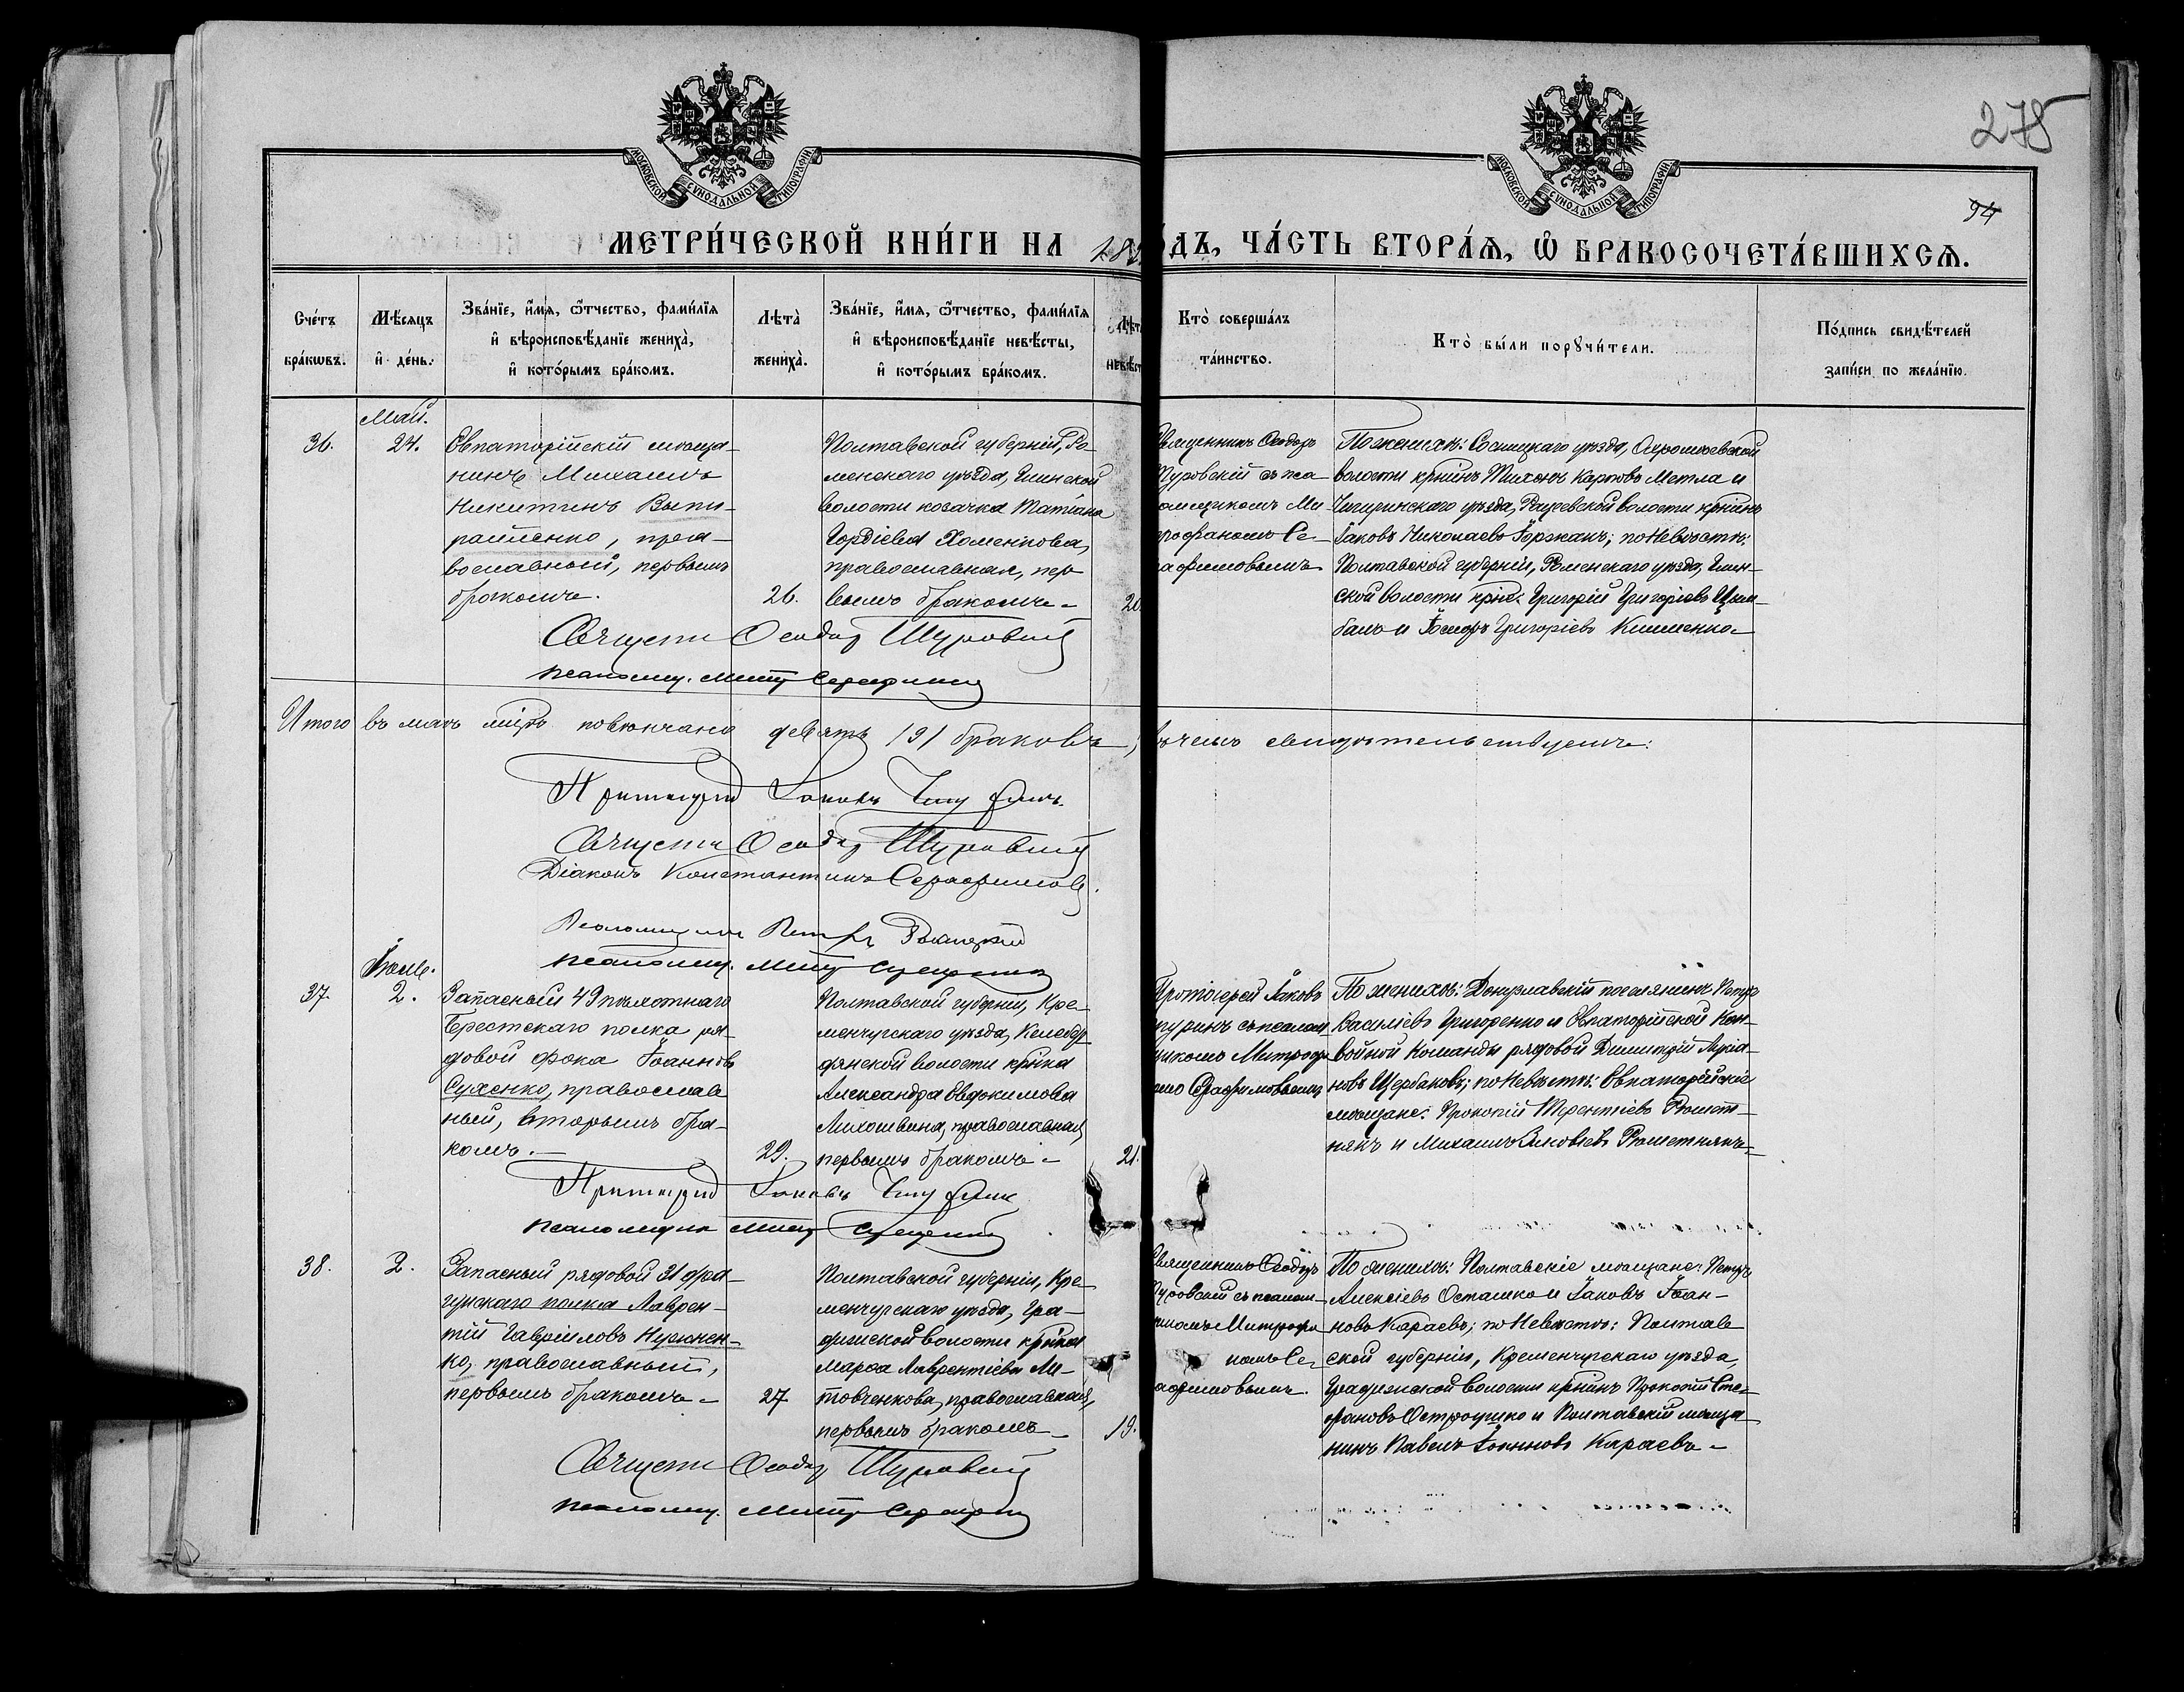 278
94
МОСКОВСКОЙ СѴНОДАЛЬНОЙ ТИПОГРАФІИ
МОСКОВСКОЙ СѴНОДАЛЬНОЙ ТИПОГРАФІИ
МЕТРИ́ЧЕСКОЙ КНИ́ГИ НА 188
ДЪ, ЧА́СТЬ ВТОРА́Ѧ, Ѡ҆ БРАКОСОЧЕТА́ВШИХСѦ.
Сче́тъ бра́кѡвъ.
Мѣ́сяцъ и҆ де́нь.
Зва́нїе, и҆́мя, ѻ҆́тчество, фами́лїя
и҆ вѣроисповѣ́данїе жениха̀,
и҆ кото́рымъ бра́комъ.
Лѣта̀ жениха̀.
Зва́нїе, и҆́мя, ѻ҆́тчество, фами́лїя
и҆ вѣроисповѣ́данїе невѣ́сты,
и҆ кото́рымъ бра́комъ.
Кто̀ соверша́лъ
та́инство.
Кто̀ бы́ли порꙋчи́тели.
По́дпись свидѣ́телей
за́писи по жела́нїю.
Май.
36.
24.
Евпаторійскій мѣща-
нинъ Михаилъ
Никитинъ
пра-
вославный, первымъ
бракомъ.
26.
Полтавской губерніи, Ро-
менскаго уѣзда, Глинской
волости козачка Татіана
Гордіева Хоменкова,
православная, пер-
вымъ бракомъ.
20
Священникъ Ѳеодоръ
Щуровскій съ пса-
ломщикомъ Ми-
трофаномъ Се-
рафимовымъ
По женихѣ: Сосницкаго уѣзда,
волости крнинъ Тихонъ Карповъ Метла и
Чигиринскаго уѣзда, волости крнинъ
Іаковъ Николаевъ Горжанъ; по невѣстѣ:
Полтавской губерніи, Роменскаго уѣзда, Глин-
ской волости крне: Григорій Григоріевъ Цым-
балъ и Григоріевъ Клименко
Священн Ѳеодоръ Щуровскій
Псаломщ. Митр Серафимов
Итого въ маѣ мцѣ повѣнчано девять /9/ браковъ, въ чемъ свидѣтельствуемъ:
Протоіерей Іаковъ Чепуринъ.
Священн Ѳеодоръ Щуровскій
Діаконъ Константинъ Серафимовъ.
Псаломщикъ Петръ
Псаломщ. Митр Серафимов
Іюнь.
37.
2.
Запасный 49 пѣхотнаго
Брестскаго полка ря-
довой Фока Іоанновъ
Сухенко, православ
ный, вторымъ бра-
комъ.
29.
Полтавской губерніи, Кре-
менчугскаго уѣзда, Келебер-
дянской волости крнка
Александра Евдокимова
Лихошвина, православная,
первымъ бракомъ.
21.
Протоіерей Іаковъ
Чепуринъ съ псалом
щикомъ Митрофа
номъ Серафимовымъ
По женихѣ: Донузлавскій поселянинъ Петръ
Василіевъ Григоренко и Евпаторійской Кон-
войной команды рядовой Димитрій Лукіа-
новъ Щербаковъ; по невѣстѣ: Евпаторійскіе
мѣщане: Прокопій Терентіевъ Решет-
някъ и Михаилъ Решетнякъ
Протоіерей Іаковъ Чепуринъ
Псаломщикъ Митр Серафимов
38.
2.
Запасный рядовой 31 дра-
гунскаго полка Лаврен-
тій Гавріиловъ
ко, православный,
первымъ бракомъ
27
Полтавской губерніи, Кре-
менчугскаго уѣзда, Гра-
дижской волости крнка
Марѳа Лаврентіева Ли-
товченкова, православная,
первымъ бракомъ
19.
Священникъ Ѳеодоръ
Щуровскій съ псалом-
щикомъ Митрофа
номъ Се-
рафимовымъ.
По женихѣ: Полтавскіе мѣщане: Петръ
Алексіевъ Осташко и Іаковъ Іоан-
новъ Караевъ; по невѣстѣ: Полтав
ской губерніи, Кременчугскаго уѣзда,
Градижской волости крнинъ Прокопій Сте-
фановъ Остроушко и Полтавскій мѣща-
нинъ Павелъ Іоанновъ Караевъ
Священн Ѳеодоръ Щуровскій
Псаломщ. Митр Серафимов